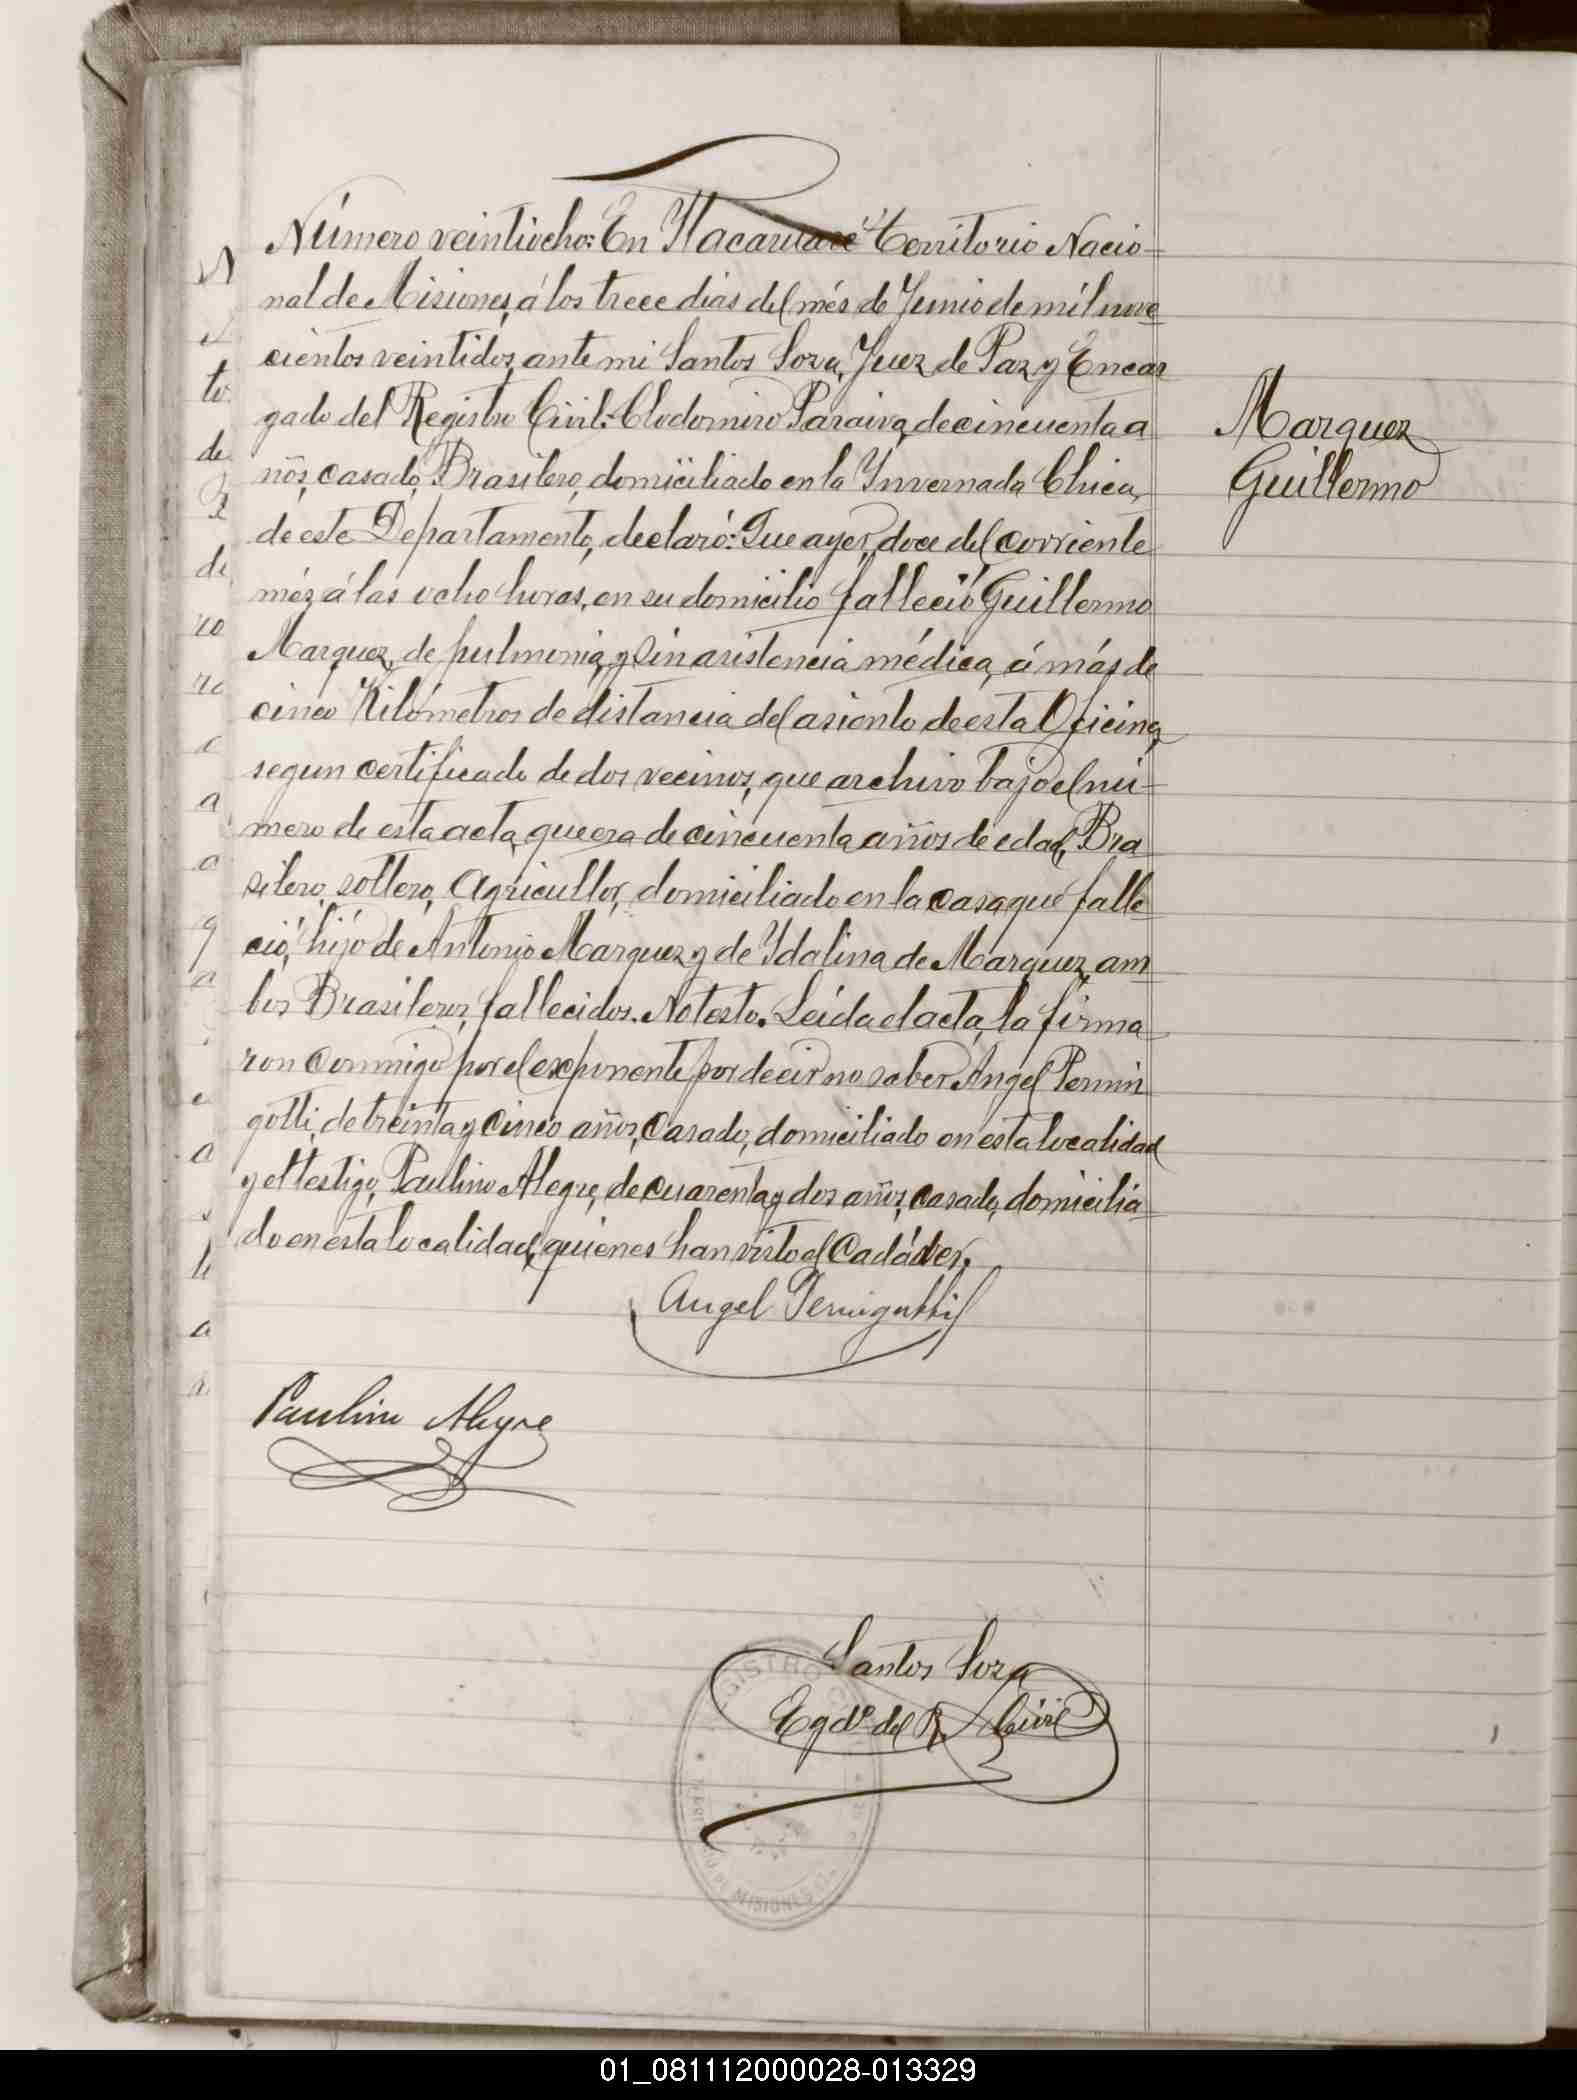 Número veintiocho: En Itacaruaré Territorio Nacio-
nal de Misiones, á los trece dias del més de Junio de mil nove
cientos veintidos, ante mi Santos Soza, Juez de Paz y Encar
gado del Registro Civil: Clodomiro Paraiva, de cincuenta a
ños, casado, Brasilero, domiciliado en la Invernada Chica,
de este Departamento, declaró: Que ayer, doce del corriente
més á las ocho horas, en su domicilio falleció Guillermo
Marquez, de pulmonia, y sin asistencia médica, á más de
cinco Kilómetros de distancia del asiento de esta Oficina,
segun certificado de dos vecinos, que archivo bajo el nú-
mero de esta acta, que era de cincuenta años de edad, Bra
silero, soltero, Agricultor, domiciliado en la casa que falle
ció, hijo de Antonio Marquez y de Ydalina de Marquez, am
bos Brasileros, fallecidos. No testo. Leída el acta, la firma
ron conmigo por el exponente por decir no saber Angel Pernin
gotti, de treinta y cinco años, casado, domiciliado en esta localidad
y el testigo, Paulino Alegre, de cuarenta y dos años, casado, domicilia-
do en esta localidad, quienes han visto el Cadáver.
Marquez
Guillermo
Angel Pernigotti
Paulino Alegre
Santos Soza
Egdo. del R. Civil
REGISTRO
MISIONES
01_081112000028-013329